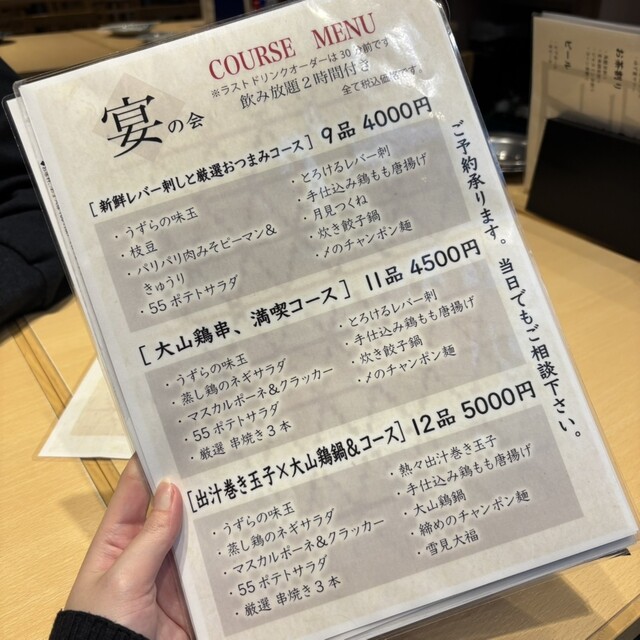 COURSE MENU
宴の会
※ラストドリンクオーダーは30分前です
飲み放題2時間付き
全て税込価格です。
[新鮮レバー刺しと厳選おつまみコース] 9品 4000円
・うずらの味玉
・枝豆
・バリバリ肉みそピーマン&
きゅうり
・55ポテトサラダ
・とろけるレバー刺
・手仕込み鶏もも唐揚げ
・月見つくね
・炊き餃子鍋
・〆のチャンポン麺
[大山鶏串、満喫コース] 11品 4500円
・うずらの味玉
・蒸し鶏のネギサラダ
・マスカルポーネ&クラッカー
・55ポテトサラダ
・厳選 串焼き3本
・とろけるレバー刺
・手仕込み鶏もも唐揚げ
・炊き餃子鍋
・〆のチャンポン麺
[出汁巻き玉子×大山鶏鍋&コース] 12品 5000円
・うずらの味玉
・蒸し鶏のネギサラダ
・マスカルポーネ&クラッカー
・55ポテトサラダ
・厳選 串焼き3本
・熱々出汁巻き玉子
・手仕込み鶏もも唐揚げ
・大山鶏鍋
・締めのチャンポン麺
・雪見大福
ご予約承ります。当日でもご相談下さい。